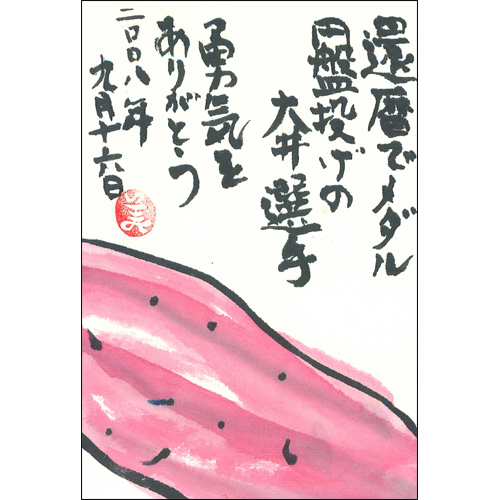 還暦でメダル
円盤投げの
大井選手
勇気を
ありがとう
二〇〇八年
九月十六日